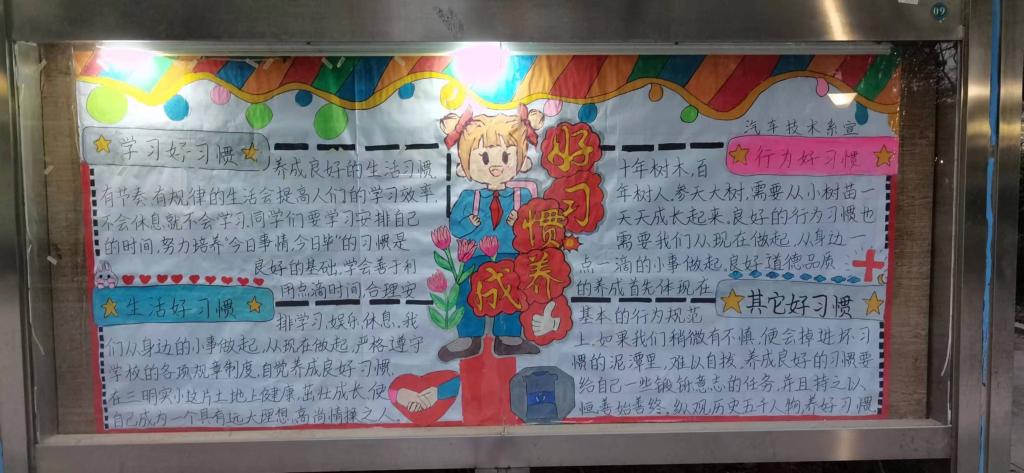 09
汽车技术系宣
好习惯养成
学习好习惯
养成良好的生活习惯
有节奏、有规律的生活会提高人们的学习效率,
不会休息,就不会学习,同学们要学习安排自己
的时间,努力培养"今日事情,今日毕"的习惯是
良好的基础,学会善于利
用点滴时间,合理安
生活好习惯
排学习、娱乐、休息、我
们从身边的小事做起,从现在做起,严格遵守
学校的各项规章制度,自觉养成良好习惯、
在三明实小这片土地上健康,茁壮成长,使
自己成为一个具有远大理想、高尚情操之人、
行为好习惯
十年树木,百
年树人,参天大树,需要从小树苗一
天天成长起来,良好的行为习惯也
需要我们从现在做起,从身边一
点一滴的小事做起,良好道德品质
的养成首先体现在
其它好习惯
基本的行为规范
上,如果我们稍微有不慎,便会掉进坏习
惯的泥潭里,难以自拔,养成良好的习惯要
给自己一些锻炼意志的任务,并且持之以
恒善始善终、纵观历史五千人物养好习惯